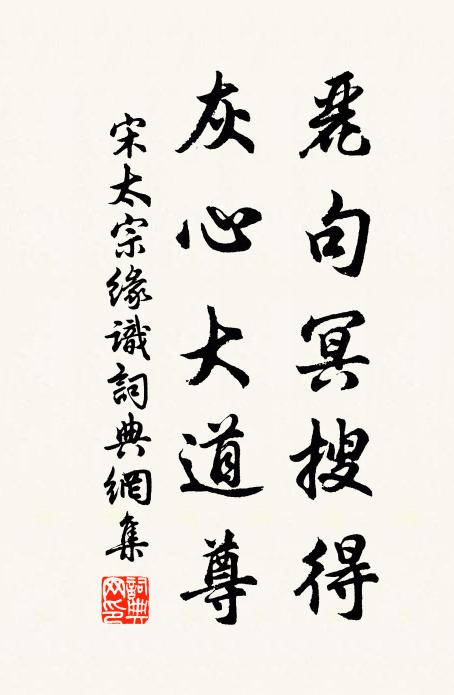 麗句冥搜得
灰心大道尊
宋太宗緣識詞典網集
詞典網印